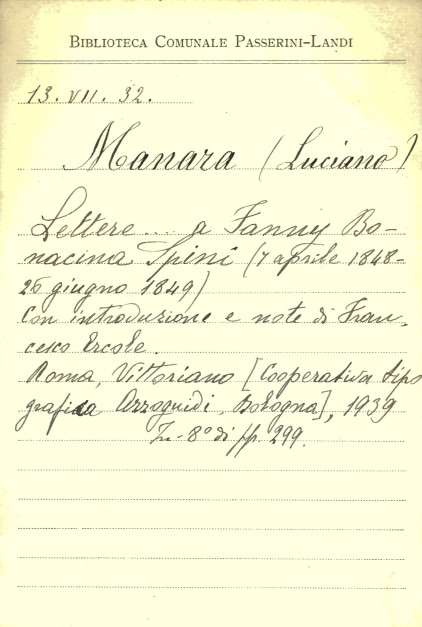 BIBLIOTECA COMUNALE PASSERINI-LANDI
13. VII. 32.
Manara (Luciano)
Lettere.... a Fanny Bo-
nacina Spini (7 aprile 1848-
26 giugno 1849)
Con introduzione e note di Fran-
cesco Ercole.
Roma, Vittoriano [Cooperativa tipo
grafica Azzoguidi, Bologna], 1939
In-8° di pp. 299.